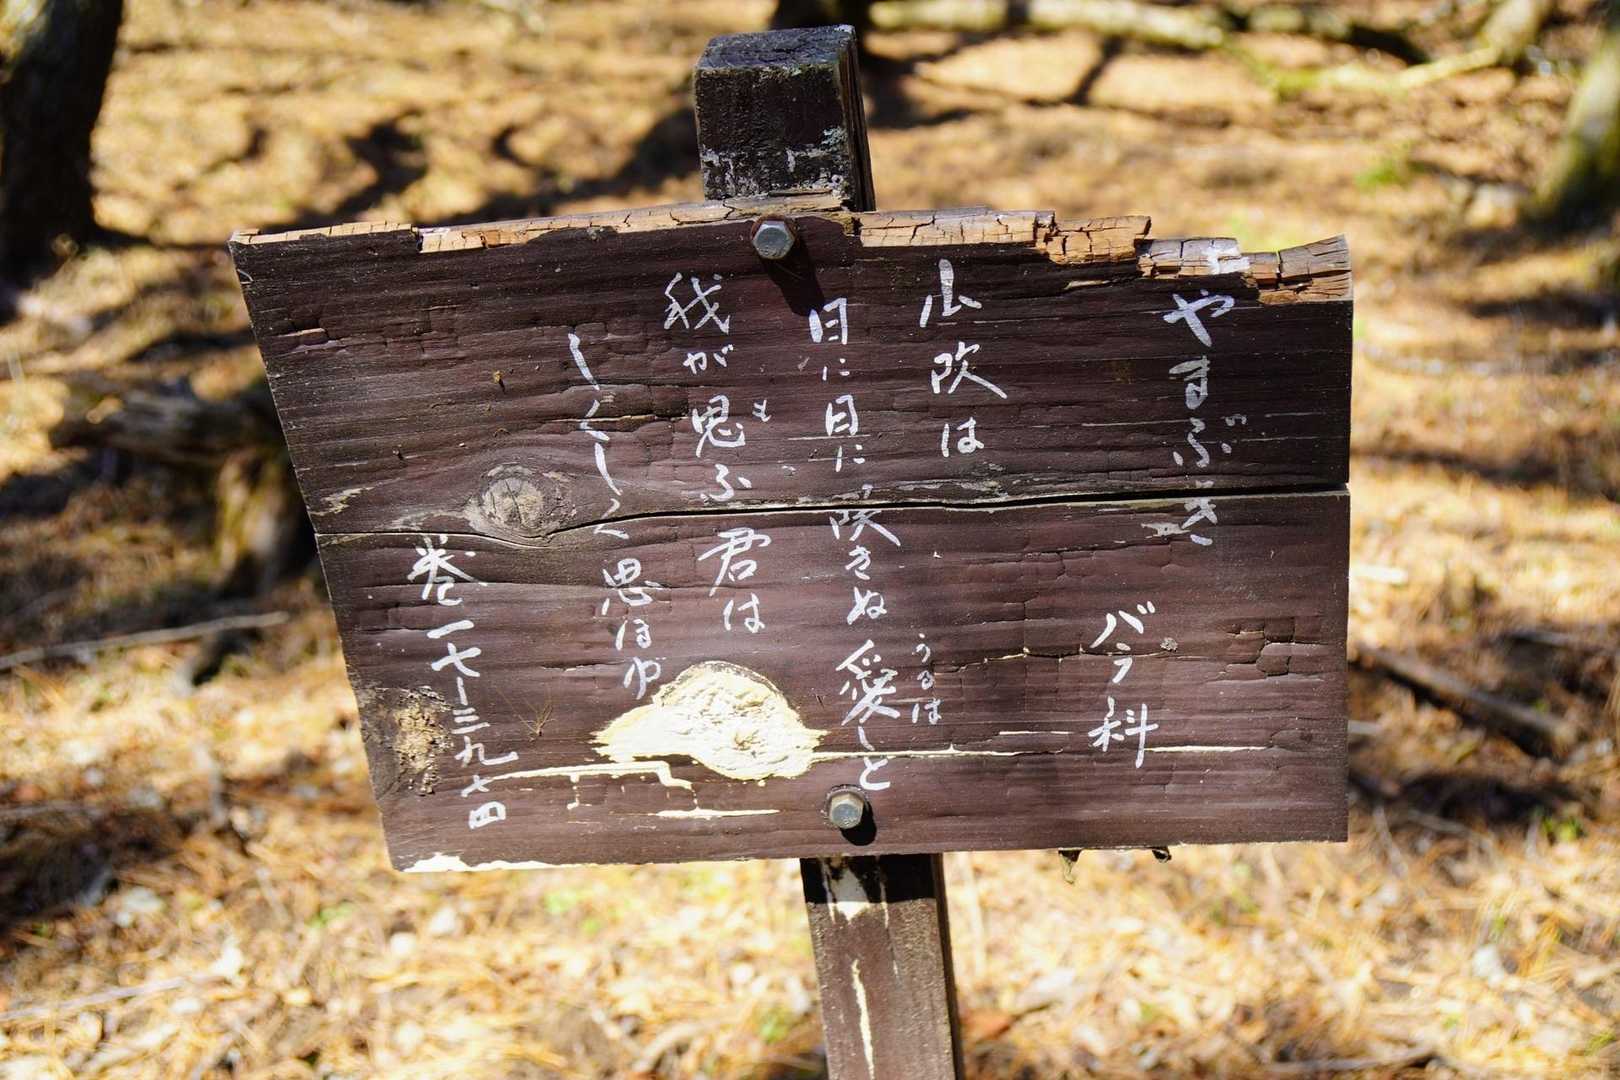 やまぶき
バラ科
山吹は
日に日に咲きぬ愛しと
うるは
我が思ふ君は
も
しくしく思ほゆ
巻一七ー三九七四